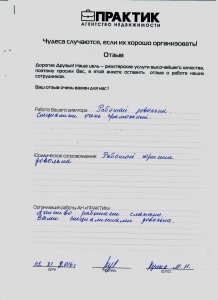 ПРАКТИК
АГЕНТСТВО НЕДВИЖИМОСТИ
Чудеса случаются, если их хорошо организовать!
Отзыв
Дорогие Друзья! Наша цель – риэлтерские услуги высочайшего качества,
поэтому просим Вас, в этой анкете оставить отзыв о работе наших
сотрудников.
Ваш отзыв очень важен для нас!
Работа Вашего риэлтора: Работой довольна.
Специалист очень грамотный.
Юридическое сопровождение: Работой юриста
довольна
Организация работы АН «ПРАКТИК»:
Агентство работает слаженно
Всеми специалистами довольна.
Дата
Подпись
ФИО